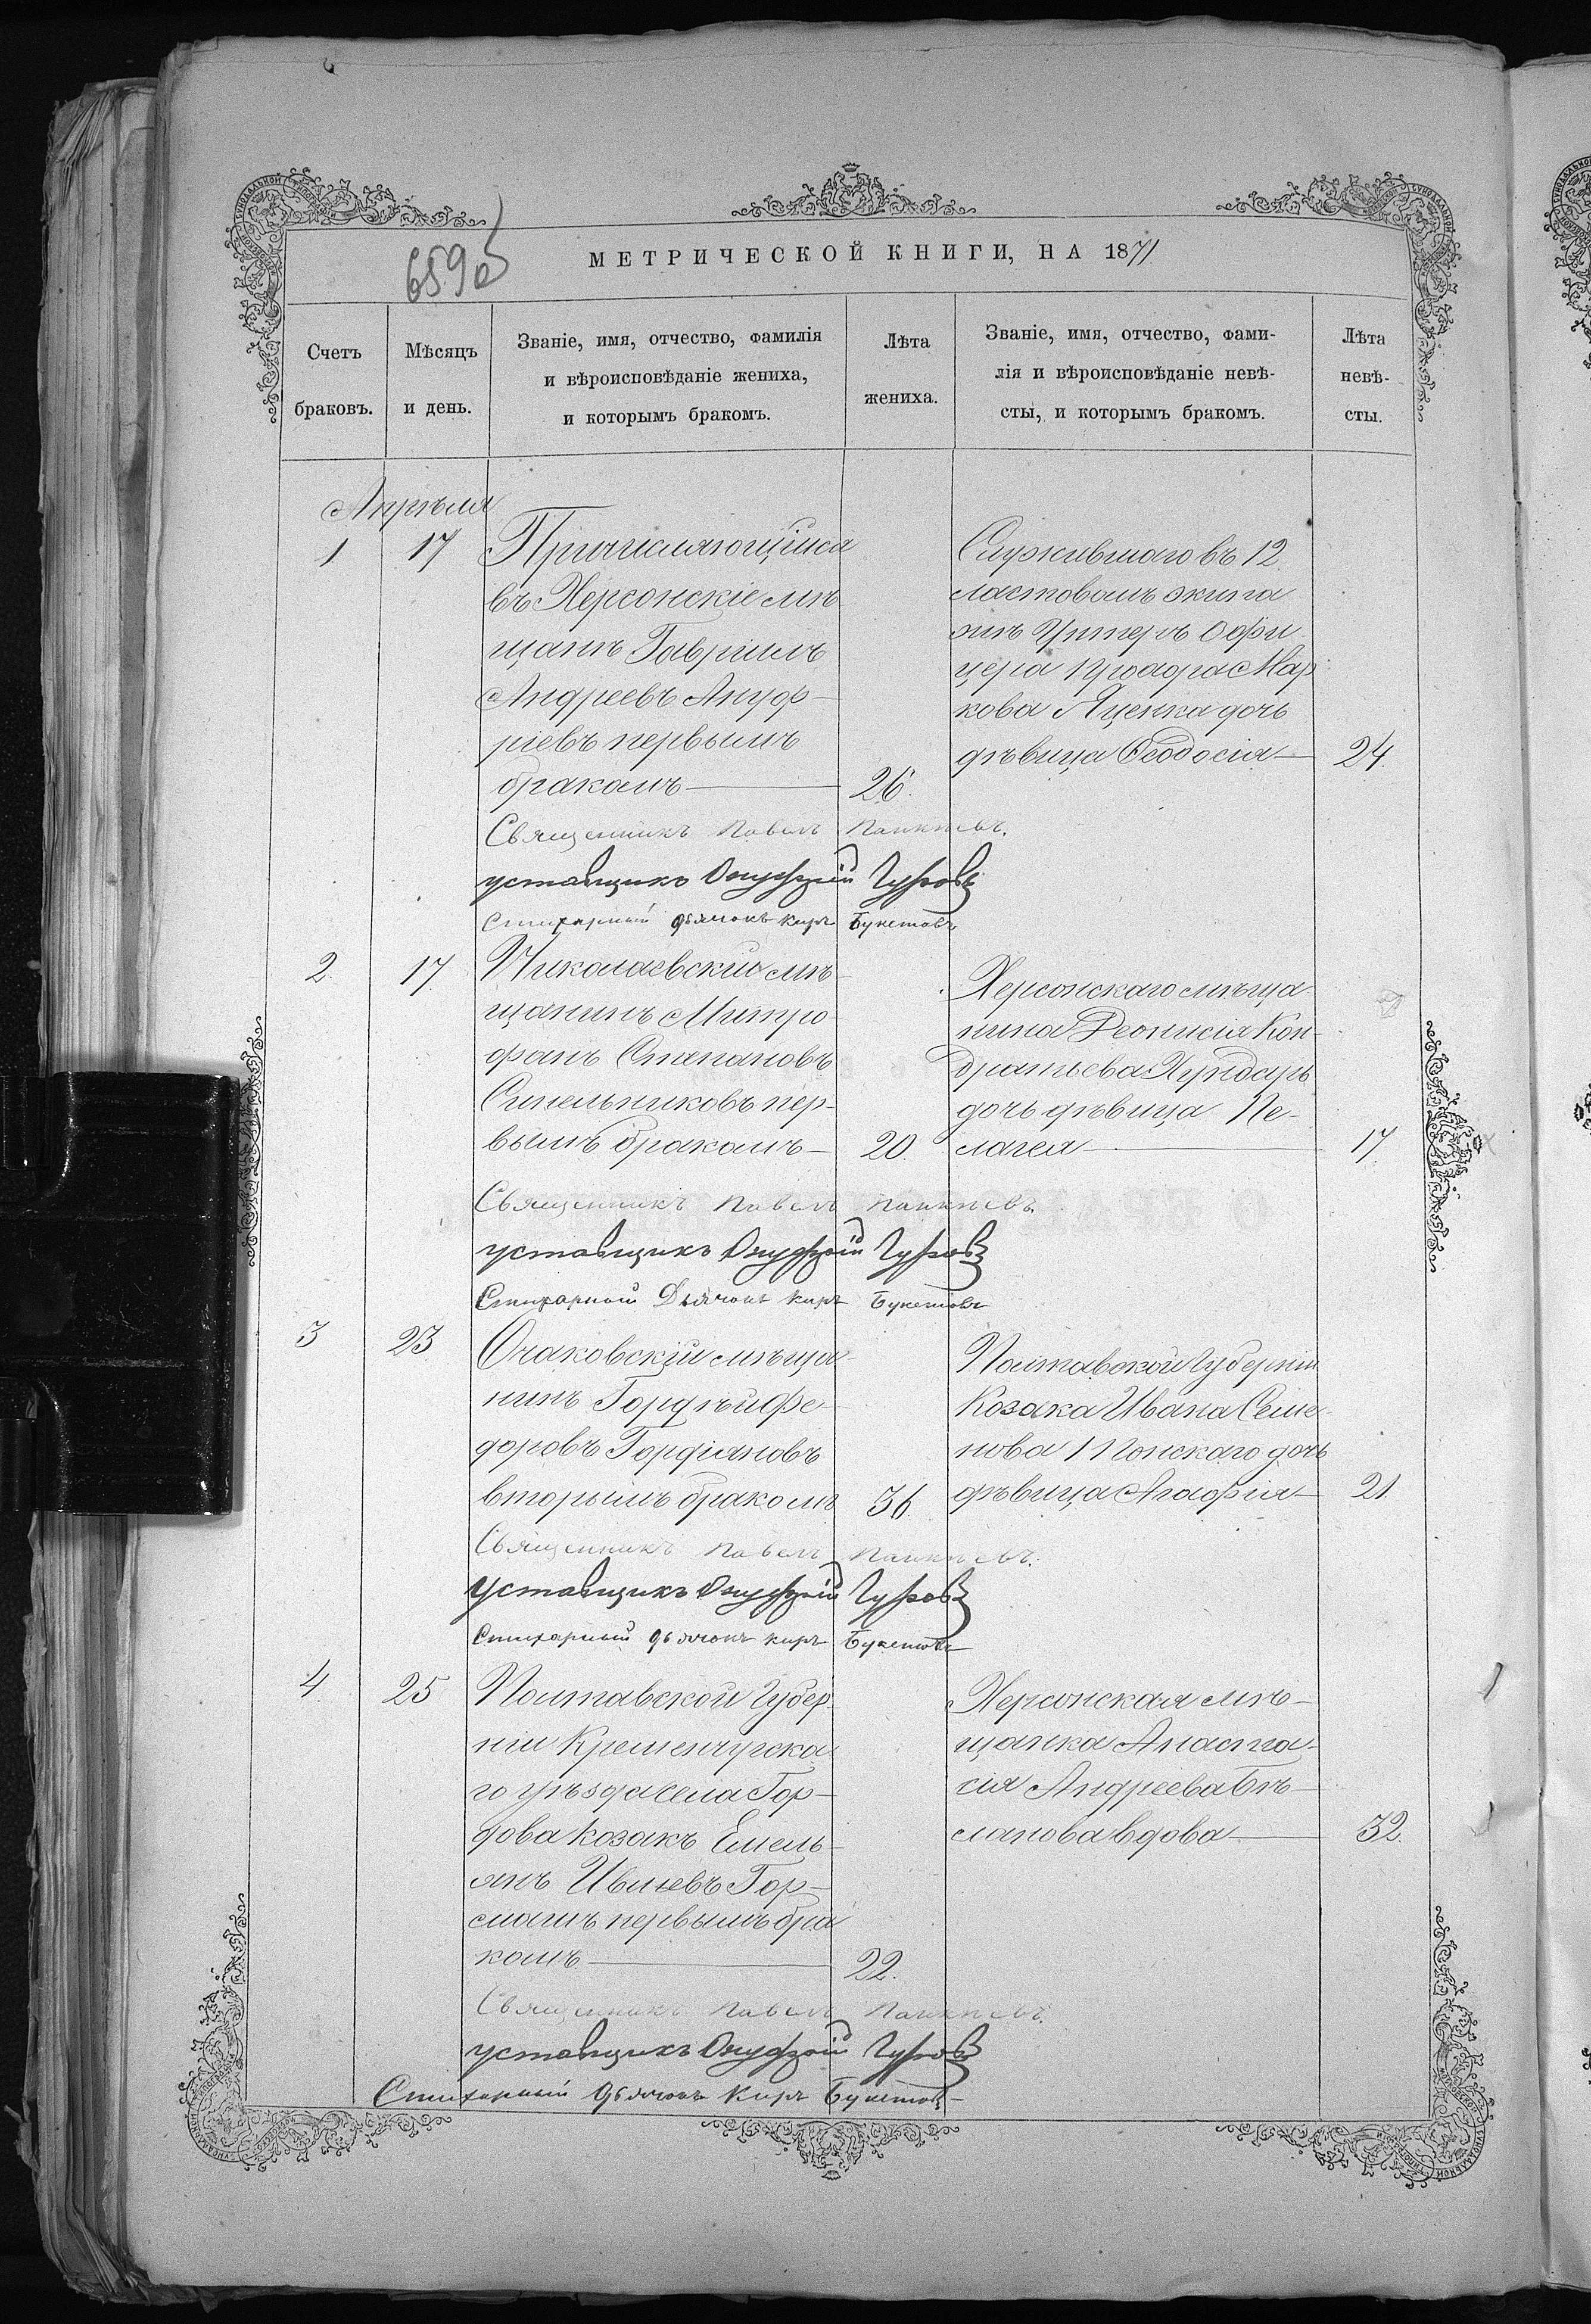 659об
МЕТРИЧЕСКОЙ КНИГИ, НА 1871
Счетъ
браковъ.
Мѣсяцъ
и день.
Званіе, имя, отчество, фамилія
и вѣроисповѣданіе жениха,
и которымъ бракомъ.
Лѣта
жениха.
Званіе, имя, отчество, фами-
лія и вѣроисповѣданіе невѣ-
сты, и которымъ бракомъ.
Лѣта
невѣ-
сты.
Апрѣля
1
17
Причисляющійся
въ Херсонскіе мѣ
щане Гавріилъ
Андреевъ Ануф-
ріевъ первымъ
бракомъ
26.
Служившаго въ 12
ластовомъ экипа
жѣ Унтеръ Офи
цера Мар
кова Яценка дочь
дѣвица Ѳеодосія
24
Священникъ Павелъ
уставщикъ Онуфрій Гуровъ
Стихарный дьячокъ Киръ Букетовъ
2.
17
Николаевскій мѣ-
щанинъ Митро-
фанъ Степановъ
Синельниковъ пер-
вымъ бракомъ
20.
Херсонскаго мѣща
нина Деонисія Кон-
дратьева
дочь дѣвица Пе-
лагея
17
Священникъ Павелъ
уставщикъ Онуфрій Гуровъ
Стихарный Дьячокъ Киръ Букетовъ
3
23
Очаковскій мѣща-
нинъ Гордѣй Фе-
доровъ Гордіановъ
вторымъ бракомъ
36
Полтавской Губерніи
Козака Ивана Семе-
нова дочь
дѣвица Агафія
21.
Священникъ Павелъ
Уставщикъ Онуфрій Гуровъ
Стихарный дьячокъ Киръ Букетовъ
4.
25
Полтавской Губер-
ніи Кременчугска
го уѣзда села Гор-
дова козакъ Емель-
янъ Ивлевъ Гор-
первымъ бра
комъ
22.
Херсонская мѣ-
щанка Анаста-
сія Андреева Бѣ-
ланова вдова
32.
Священникъ Павелъ
уставщикъ Онуфрій Гуровъ
Стихарный Дьячокъ Киръ Букетовъ